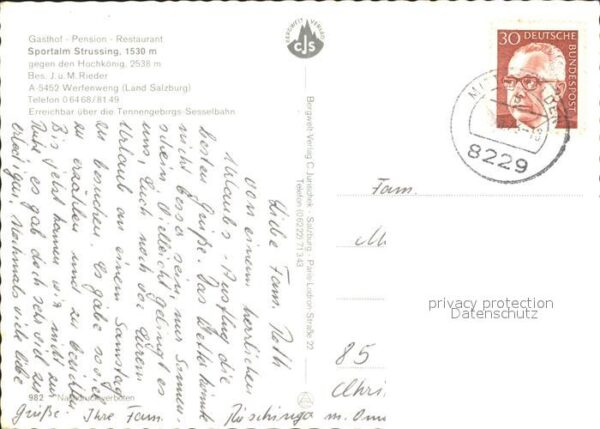 Gasthof - Pension - Restaurant
Sportalm Strussing, 1530 m
gegen den Hochkönig, 2538 m
Bes. J. u. M. Rieder
A-5452 Werfenweng (Land Salzburg)
Telefon 0 64 68 / 81 49
Erreichbar über die Tennengebirgs-Sesselbahn
BERGWELT VERLAG
CJS
Bergwelt-Verlag C. Jurischek · Salzburg · Paris-Lodron-Straße 22
Telefon (06222) 71 3 43
30 DEUTSCHE
BUNDESPOST
8229
Liebe Fam. Roth
von einem herrlichen
Urlaubs-Ausflug die
besten Grüße. Das Wetter könnte
nicht besser sein, nur Sonnen-
schein! Vielleicht gelingt es
uns, Euch noch vor Eurem
Urlaub an einem Samstag
zu besuchen. Es gäbe so viel
zu erzählen und zu berichten.
Bis jetzt kamen wir nicht zur
Ruhe, es gab doch sehr viel zu
erledigen. Nochmals viele liebe
Grüße. Ihre Fam.
m.
Fam.
M
85
Chri
982 Nachdruck verboten
privacy protection
Datenschutz